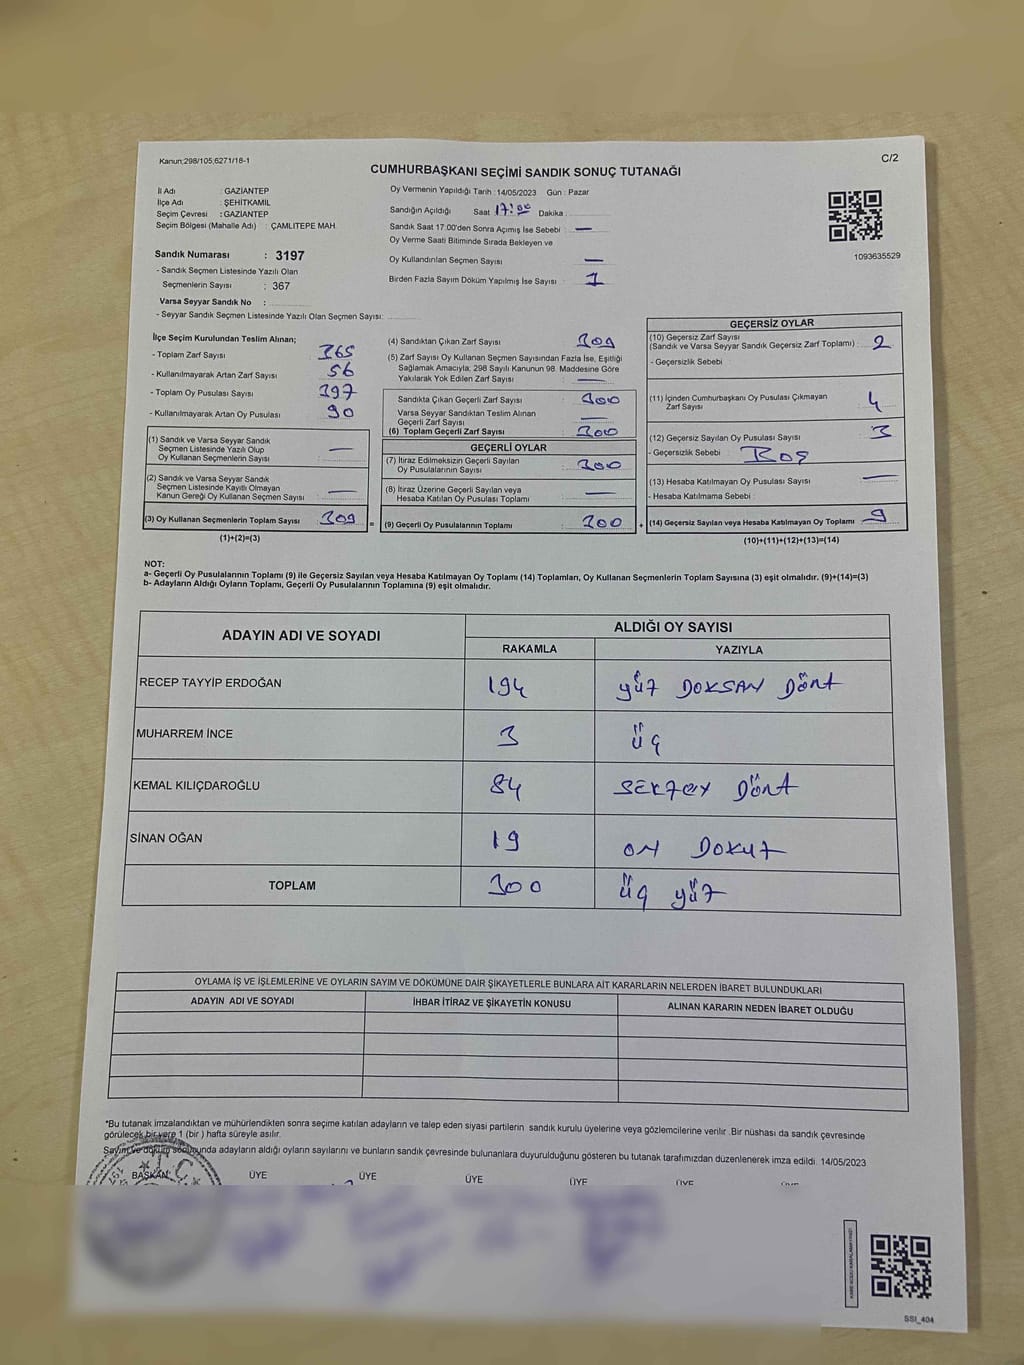 Kanun;298/105;6271/18-1
C/2
CUMHURBAŞKANI SEÇİMİ SANDIK SONUÇ TUTANAĞI
İl Adı : GAZİANTEP
İlçe Adı : ŞEHİTKAMİL
Seçim Çevresi : GAZİANTEP
Seçim Bölgesi (Mahalle Adı) : ÇAMLITEPE MAH.
Sandık Numarası : 3197
- Sandık Seçmen Listesinde Yazılı Olan
Seçmenlerin Sayısı : 367
Varsa Seyyar Sandık No :
- Seyyar Sandık Seçmen Listesinde Yazılı Olan Seçmen Sayısı:
Oy Vermenin Yapıldığı Tarih : 14/05/2023 Gün : Pazar
Sandığın Açıldığı Saat 17:00 Dakika :
Sandık Saat 17:00'den Sonra Açımış İse Sebebi : —
Oy Verme Saati Bitiminde Sırada Bekleyen ve
Oy Kullandırılan Seçmen Sayısı —
Birden Fazla Sayım Döküm Yapılmış İse Sayısı : 1
1093635529
İlçe Seçim Kurulundan Teslim Alınan;
- Toplam Zarf Sayısı : 365
- Kullanılmayarak Artan Zarf Sayısı : 56
- Toplam Oy Pusulası Sayısı : 397
- Kullanılmayarak Artan Oy Pusulası : 90
(1) Sandık ve Varsa Seyyar Sandık
Seçmen Listesinde Yazılı Olup
Oy Kullanan Seçmenlerin Sayısı : —
(2) Sandık ve Varsa Seyyar Sandık
Seçmen Listesinde Kayıtlı Olmayan
Kanun Gereği Oy Kullanan Seçmen Sayısı : —
(3) Oy Kullanan Seçmenlerin Toplam Sayısı : 309 =
(1)+(2)=(3)
(4) Sandıktan Çıkan Zarf Sayısı : 309
(5) Zarf Sayısı Oy Kullanan Seçmen Sayısından Fazla İse, Eşitliği
Sağlamak Amacıyla; 298 Sayılı Kanunun 98. Maddesine Göre
Yakılarak Yok Edilen Zarf Sayısı : —
Sandıkta Çıkan Geçerli Zarf Sayısı : 300
Varsa Seyyar Sandıktan Teslim Alınan
Geçerli Zarf Sayısı : —
(6) Toplam Geçerli Zarf Sayısı : 300
GEÇERLİ OYLAR
(7) İtiraz Edilmeksizin Geçerli Sayılan
Oy Pusulalarının Sayısı : 300
(8) İtiraz Üzerine Geçerli Sayılan veya
Hesaba Katılan Oy Pusulası Toplamı : —
(9) Geçerli Oy Pusulalarının Toplamı : 300 +
GEÇERSİZ OYLAR
(10) Geçersiz Zarf Sayısı
(Sandık ve Varsa Seyyar Sandık Geçersiz Zarf Toplamı) : 2
- Geçersizlik Sebebi :
(11) İçinden Cumhurbaşkanı Oy Pusulası Çıkmayan
Zarf Sayısı : 4
(12) Geçersiz Sayılan Oy Pusulası Sayısı : 3
- Geçersizlik Sebebi : BOŞ
(13) Hesaba Katılmayan Oy Pusulası Sayısı : —
- Hesaba Katılmama Sebebi :
(14) Geçersiz Sayılan veya Hesaba Katılmayan Oy Toplamı : 9
(10)+(11)+(12)+(13)=(14)
NOT:
a- Geçerli Oy Pusulalarının Toplamı (9) ile Geçersiz Sayılan veya Hesaba Katılmayan Oy Toplamı (14) Toplamları, Oy Kullanan Seçmenlerin Toplam Sayısına (3) eşit olmalıdır. (9)+(14)=(3)
b- Adayların Aldığı Oyların Toplamı, Geçerli Oy Pusulalarının Toplamına (9) eşit olmalıdır.
ADAYIN ADI VE SOYADI
ALDIĞI OY SAYISI
RAKAMLA YAZIYLA
RECEP TAYYİP ERDOĞAN 194 yüz DOKSAN Dört
MUHARREM İNCE 3 üç
KEMAL KILIÇDAROĞLU 84 SEKZEN Dört
SİNAN OĞAN 19 ON DOKUZ
TOPLAM 300 üç yüz
OYLAMA İŞ VE İŞLEMLERİNE VE OYLARIN SAYIM VE DÖKÜMÜNE DAİR ŞİKAYETLERLE BUNLARA AİT KARARLARIN NELERDEN İBARET BULUNDUKLARI
ADAYIN ADI VE SOYADI İHBAR İTİRAZ VE ŞİKAYETİN KONUSU ALINAN KARARIN NEDEN İBARET OLDUĞU
*Bu tutanak imzalandıktan ve mühürlendikten sonra seçime katılan adayların ve talep eden siyasi partilerin sandık kurulu üyelerine veya gözlemcilerine verilir. Bir nüshası da sandık çevresinde
görülecek bir yere 1 (bir ) hafta süreyle asılır.
Sayım ve döküm sonunda adayların aldığı oyların sayılarını ve bunların sandık çevresinde bulunanlara duyurulduğunu gösteren bu tutanak tarafımızdan düzenlenerek imza edildi. 14/05/2023
BAŞKAN ÜYE ÜYE ÜYE ÜYE ÜYE
T.C.
SSI_404